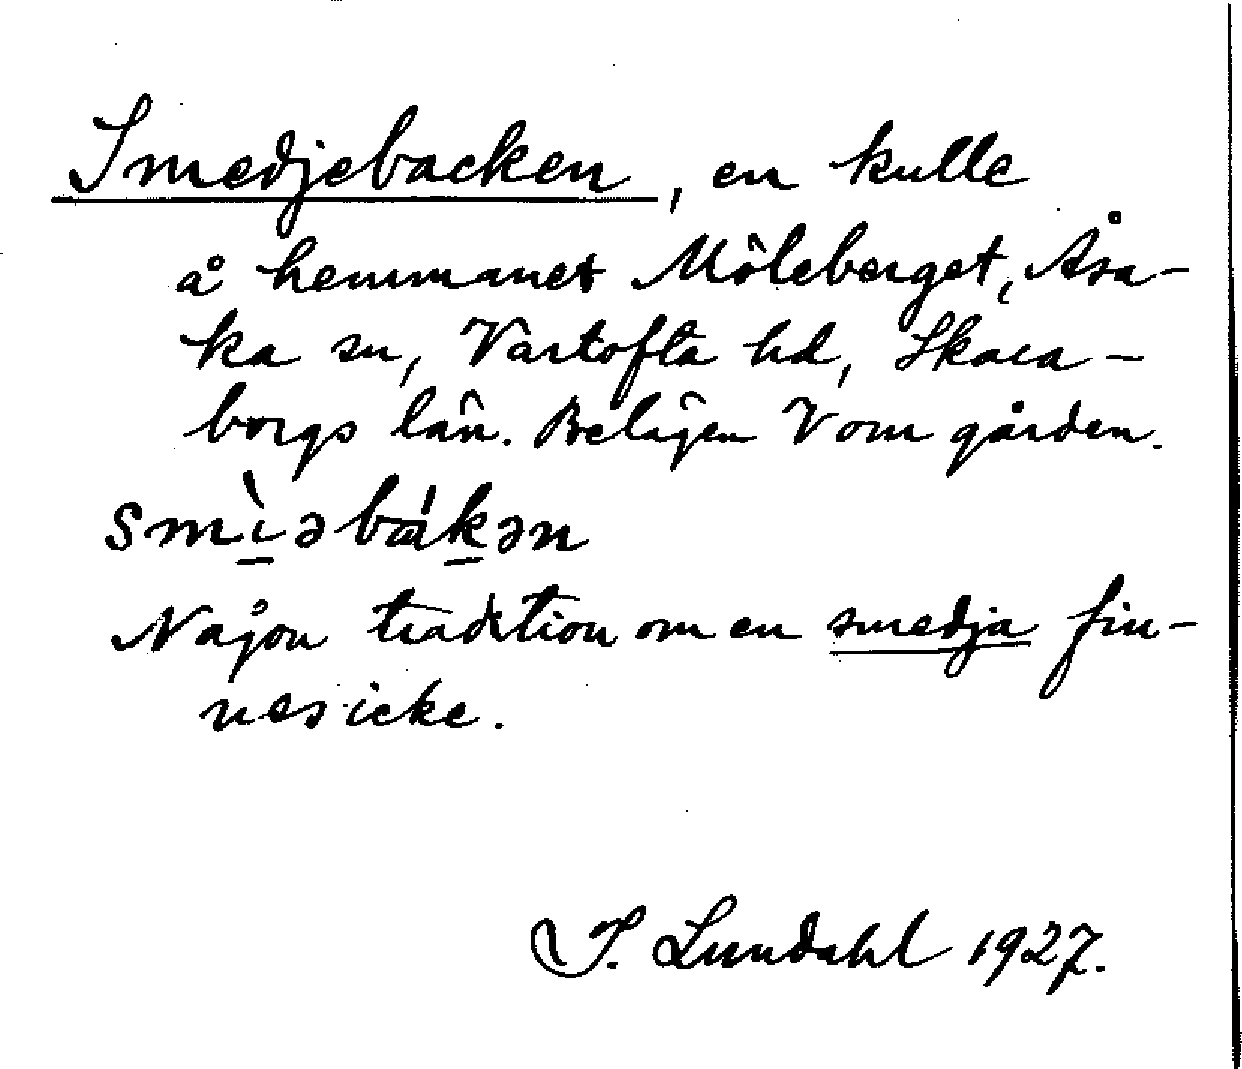 Smedjebacken, en kulle
å hemmanet Möleberget, Åsa-
ka sn, Vartofta hd, Skara-
borgs län. Belägen V om gården.
smìəbákən
Någon tradition om en smedja fin-
nes icke.
I. Lundahl 1927.